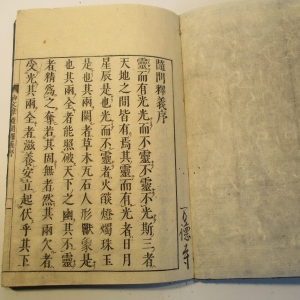 隨問釋義序
靈而有光光而不靈不靈不光斯三者
天地之間皆有焉其靈而有光者日月
星辰是也其光而不靈者火燄燈燭珠玉
是也其兩闕者草木瓦石人形獸象是
也其兩全者能照破天下之幽其不靈
者精爲之奪若其固無者然其兩欠者
受光其兩全者滋養安立起伏乎其下